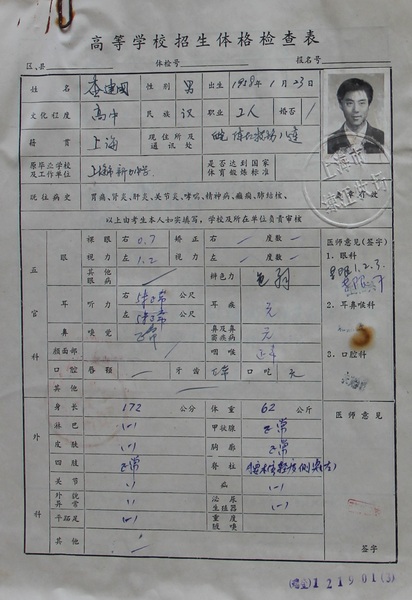 高等学校招生体格检查表
区、县 体检号 报名号
姓名 李建国 性别 男 出生 1958年1月23日
文化程度 高中 民族 汉 职业 工人 婚否 /
籍贯 上海 现住所及通讯处
原毕业学校及工作单位 是否达到国家体育锻炼标准
既往病史 胃病、肾炎、肝炎、关节炎、哮喘、精神病、癫痫、肺结核、
以上由考生本人如实填写，学校及所在单位负责审核
五官科
眼 裸眼视力 右 0.7 左 1.2 矫正视力 右 度数 左 度数
其他眼病 辨色力 色弱
耳 听力 右 公尺 左 公尺 耳疾 无
鼻 嗅觉 正常 鼻及鼻窦疾病 无
颜面部 咽喉 正常
口腔 唇颚 牙齿 正常 口吃 无
其他
医师意见（签字）
1. 眼科
2. 耳鼻喉科
3. 口腔科
外科
身长 172 公分 体重 62 公斤
淋巴 (-) 甲状腺 正常
皮肤 (-) 胸廓 正常
四肢 正常 脊柱
关节 (-) 疝 (-)
外貌异常 (-) 泌尿生殖器 (-)
平跖足 (-) 重度
其他
医师意见
签字
121901(3)